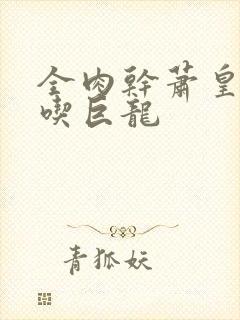 全肉幹蕭皇
喫巨龍
青狐妖